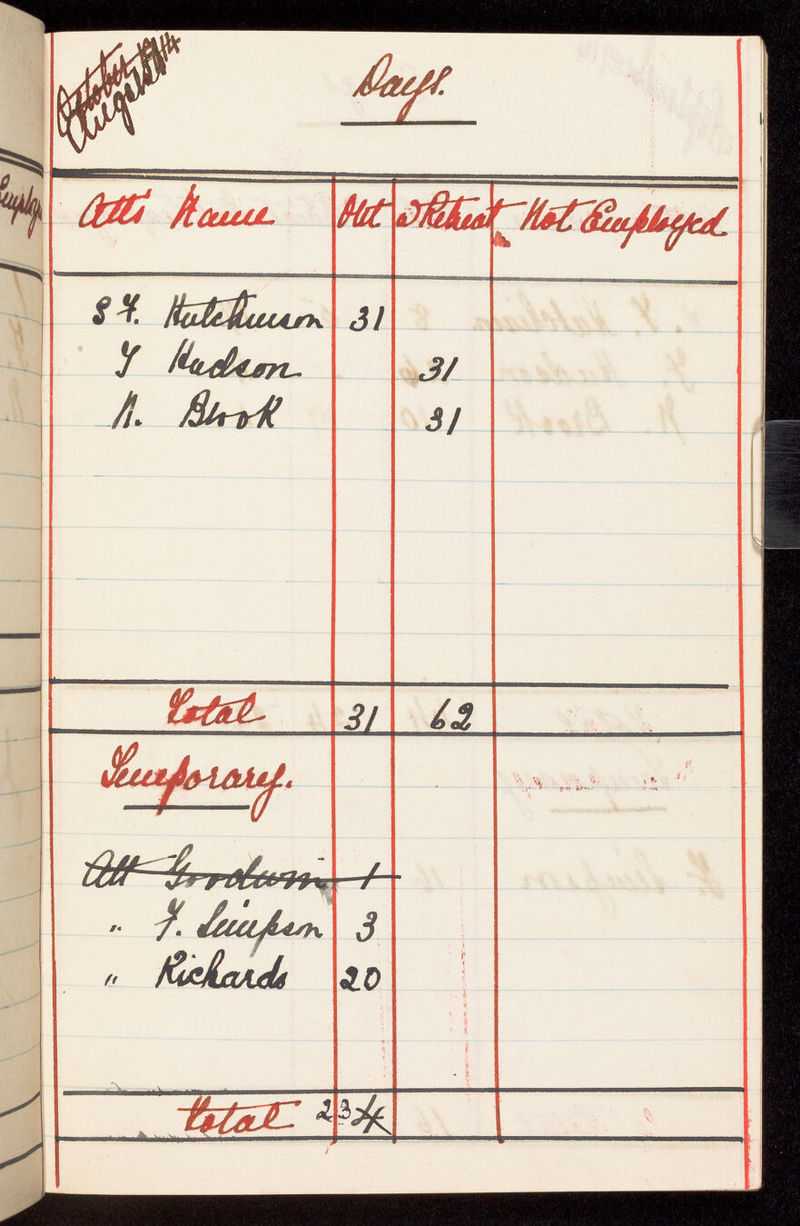 October 1914
August
Days.
Atts Name Out @ Retreat Not Employed
S F. Hutchinson 31
T Hudson 31
N. Brook 31
Total 31 62
Temporary.
Att Goodwin 1
" F. Simpson 3
" Richards 20
Total 23 4